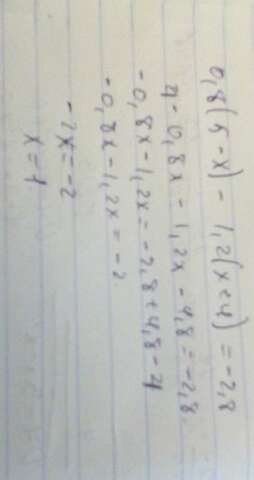 0,8(5-x) - 1,2(x+4) = -2,8
4-0,8x - 1,2x - 4,8 = -2,8
-0,8x - 1,2x = -2,8+4,8-4
-0,8x - 1,2x = -2
-2x = -2
x = 1